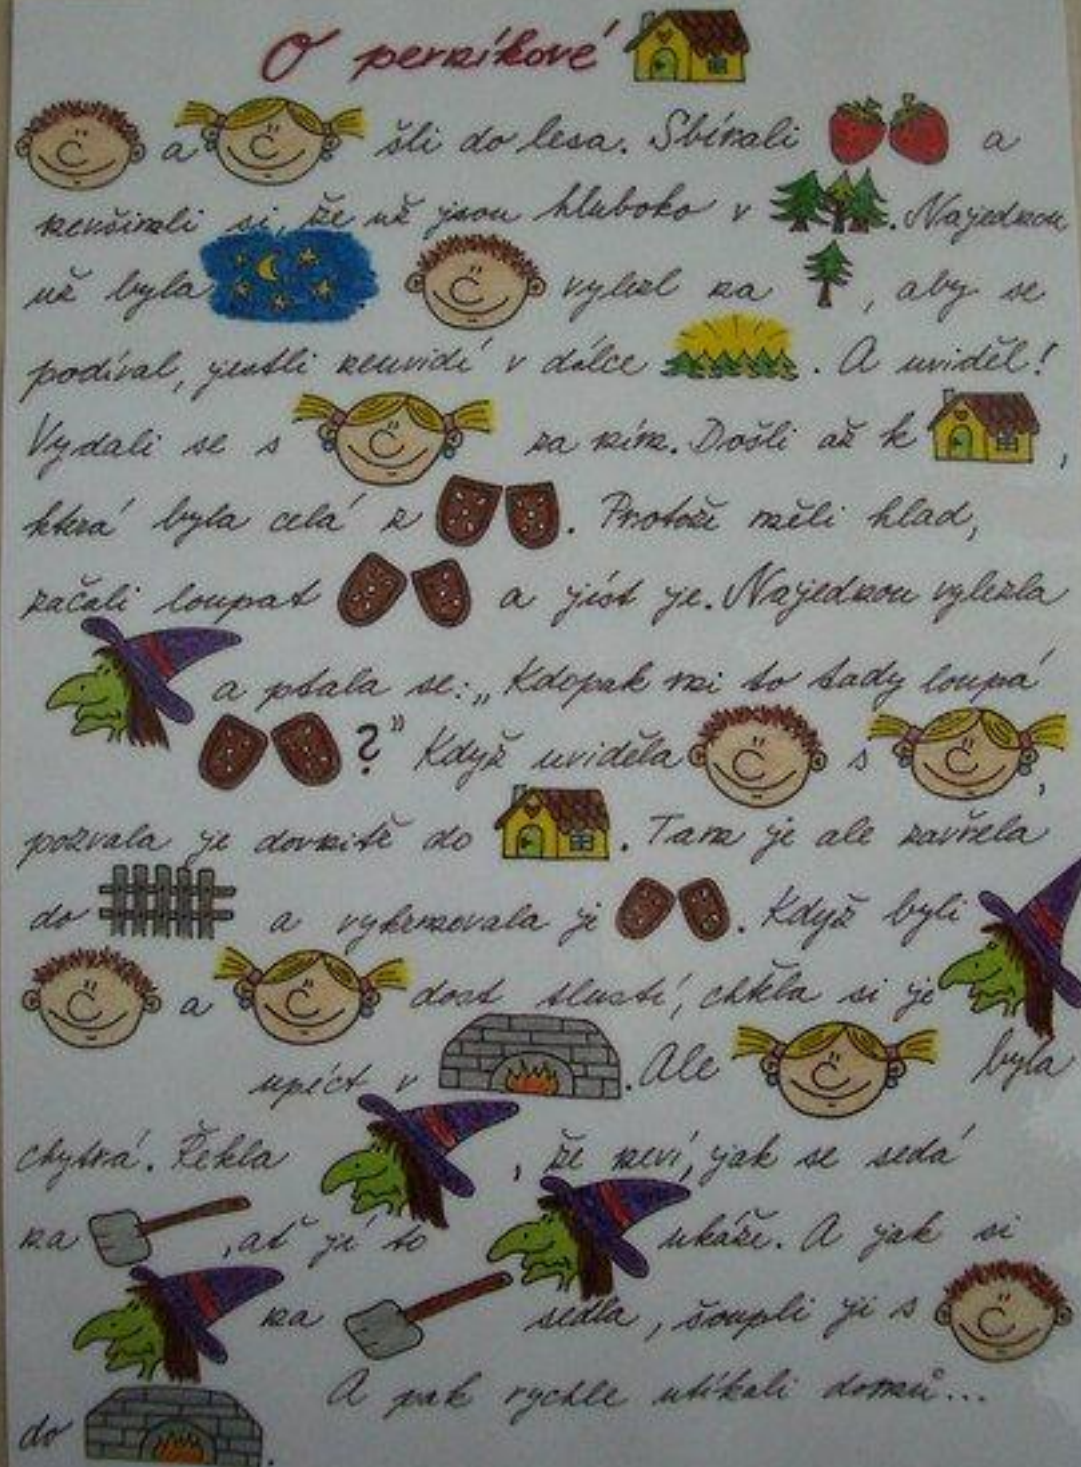 O perníkové
a šli do lesa. Sbírali a
nevšimli si, že už jsou hluboko v . Najednou
už byla vylezl na , aby se
podíval, jestli neuvidí v dálce . A uviděl!
Vydali se s za ním. Došli až k ,
která byla celá z . Protože měli hlad,
začali loupat a jíst je. Najednou vylezla
a ptala se: „Kdopak mi to tady loupá
?" Když uviděla s ,
pozvala je dovnitř do . Tam je ale zavřela
do a vykrmovala je . Když byli
a dost tlustí, chtěla si je
upéct v . Ale byla
chytrá. Řekla , že neví, jak se sedá
na , ať jí to ukáže. A jak si
na sedla, šoupli ji s
do .
A pak rychle utíkali domů...